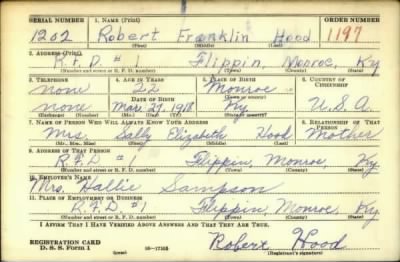 SERIAL NUMBER 1. NAME (Print) ORDER NUMBER
1202 Robert Franklin Hood 1197
(First) (Middle) (Last)
2. ADDRESS (Print)
R.F.D. #1 Flippin, Monroe, Ky
(Number and street or R. F. D. number) (Town) (County) (State)
3. TELEPHONE 4. AGE IN YEARS 5. PLACE OF BIRTH 6. COUNTRY OF CITIZENSHIP
none 22 Monroe
DATE OF BIRTH (Town or county)
none Mar. 27, 1918 Ky U.S.A.
(Exchange) (Number) (Mo.) (Day) (Yr.) (State or country)
7. NAME OF PERSON WHO WILL ALWAYS KNOW YOUR ADDRESS 8. RELATIONSHIP OF THAT PERSON
Mrs. Sally Elizabeth Hood Mother
(Mr., Mrs., Miss) (First) (Middle) (Last)
9. ADDRESS OF THAT PERSON
R.F.D. #1 Flippin, Monroe, Ky.
(Number and street or R. F. D. number) (Town) (County) (State)
10. EMPLOYER'S NAME
Mrs. Hallie Sampson
11. PLACE OF EMPLOYMENT OR BUSINESS
R.F.D. #1 Flippin, Monroe, Ky
(Number and street or R. F. D. number) (Town) (County) (State)
I AFFIRM THAT I HAVE VERIFIED ABOVE ANSWERS AND THAT THEY ARE TRUE.
REGISTRATION CARD Robert Hood
D. S. S. Form 1 (over) 16-17105 (Registrant's signature)